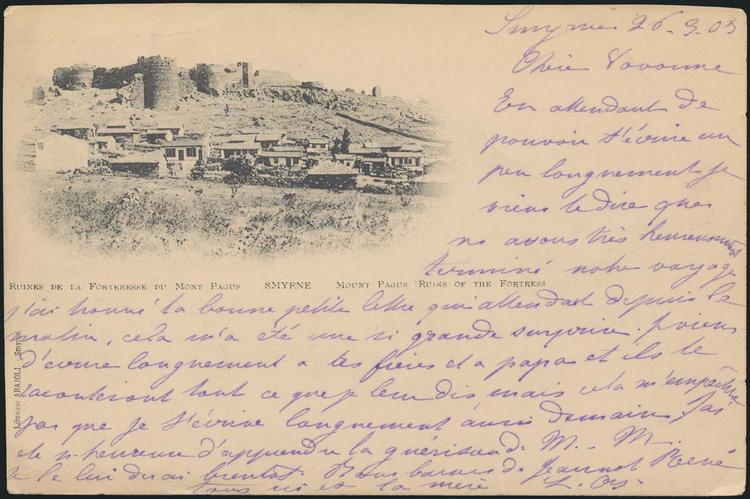 Smyrne 26-9-05
Chère Vovonne
En attendant de
pouvoir t'écrire un
peu longuement je
viens te dire que
ns avons très heureusement
terminé notre voyage
RUINES DE LA FORTERESSE DU MONT PAGUS SMYRNE MOUNT PAGUS RUINS OF THE FORTRESS
j'ai trouvé ta bonne petite lettre qui attendait depuis le
matin, cela m'a été une si grande surprise. je viens
d'écrire longuement a tes frères et a papa et ils te
raconteront tout ce que je leur dis mais cela m'empêchera
pas que je t'écrive longuement aussi demain. J'ai
été si heureuse d'apprendre la guérison de M. M.
je le lui dirai bientôt. Bons baisers de Jeannot René
tous ici et ta mère
Librairie ABAJOLI, Smyrne